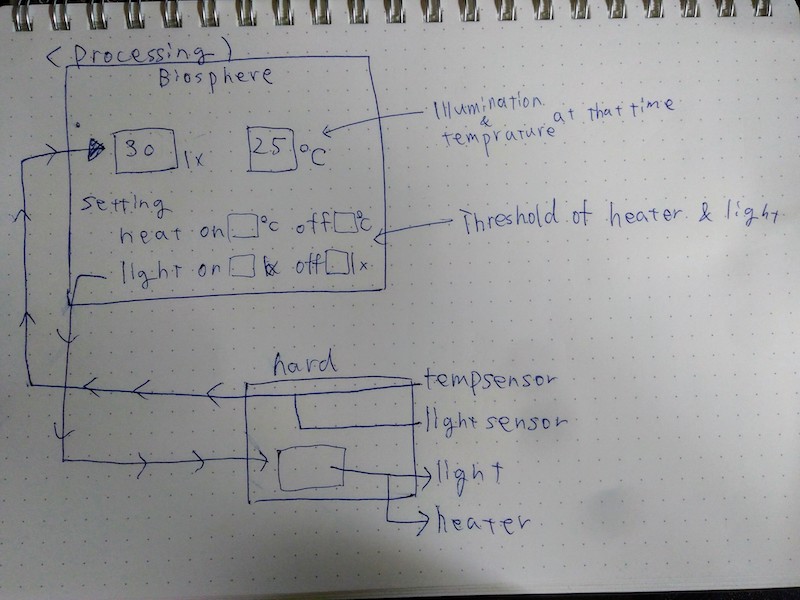 (Processing)
Biosphere
30 lx 25 °C
Illumination
&
temprature at that time
setting
heat on °C off °C
light on lx off lx
Threshold of heater & light
hard
tempsensor
light sensor
light
heater